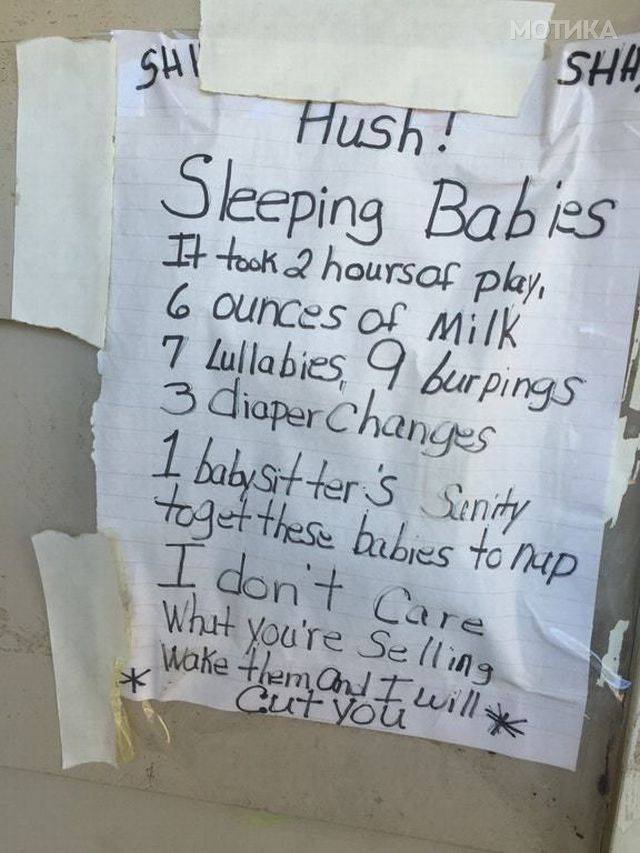 МОТИКА
SHH SHH
Hush!
Sleeping Babies
It took 2 hours of play,
6 ounces of Milk
7 Lullabies, 9 burpings
3 diaper changes
1 babysitter's Sanity
to get these babies to nap
I don't Care
What you're Selling
Wake them and I will
* Cut you *